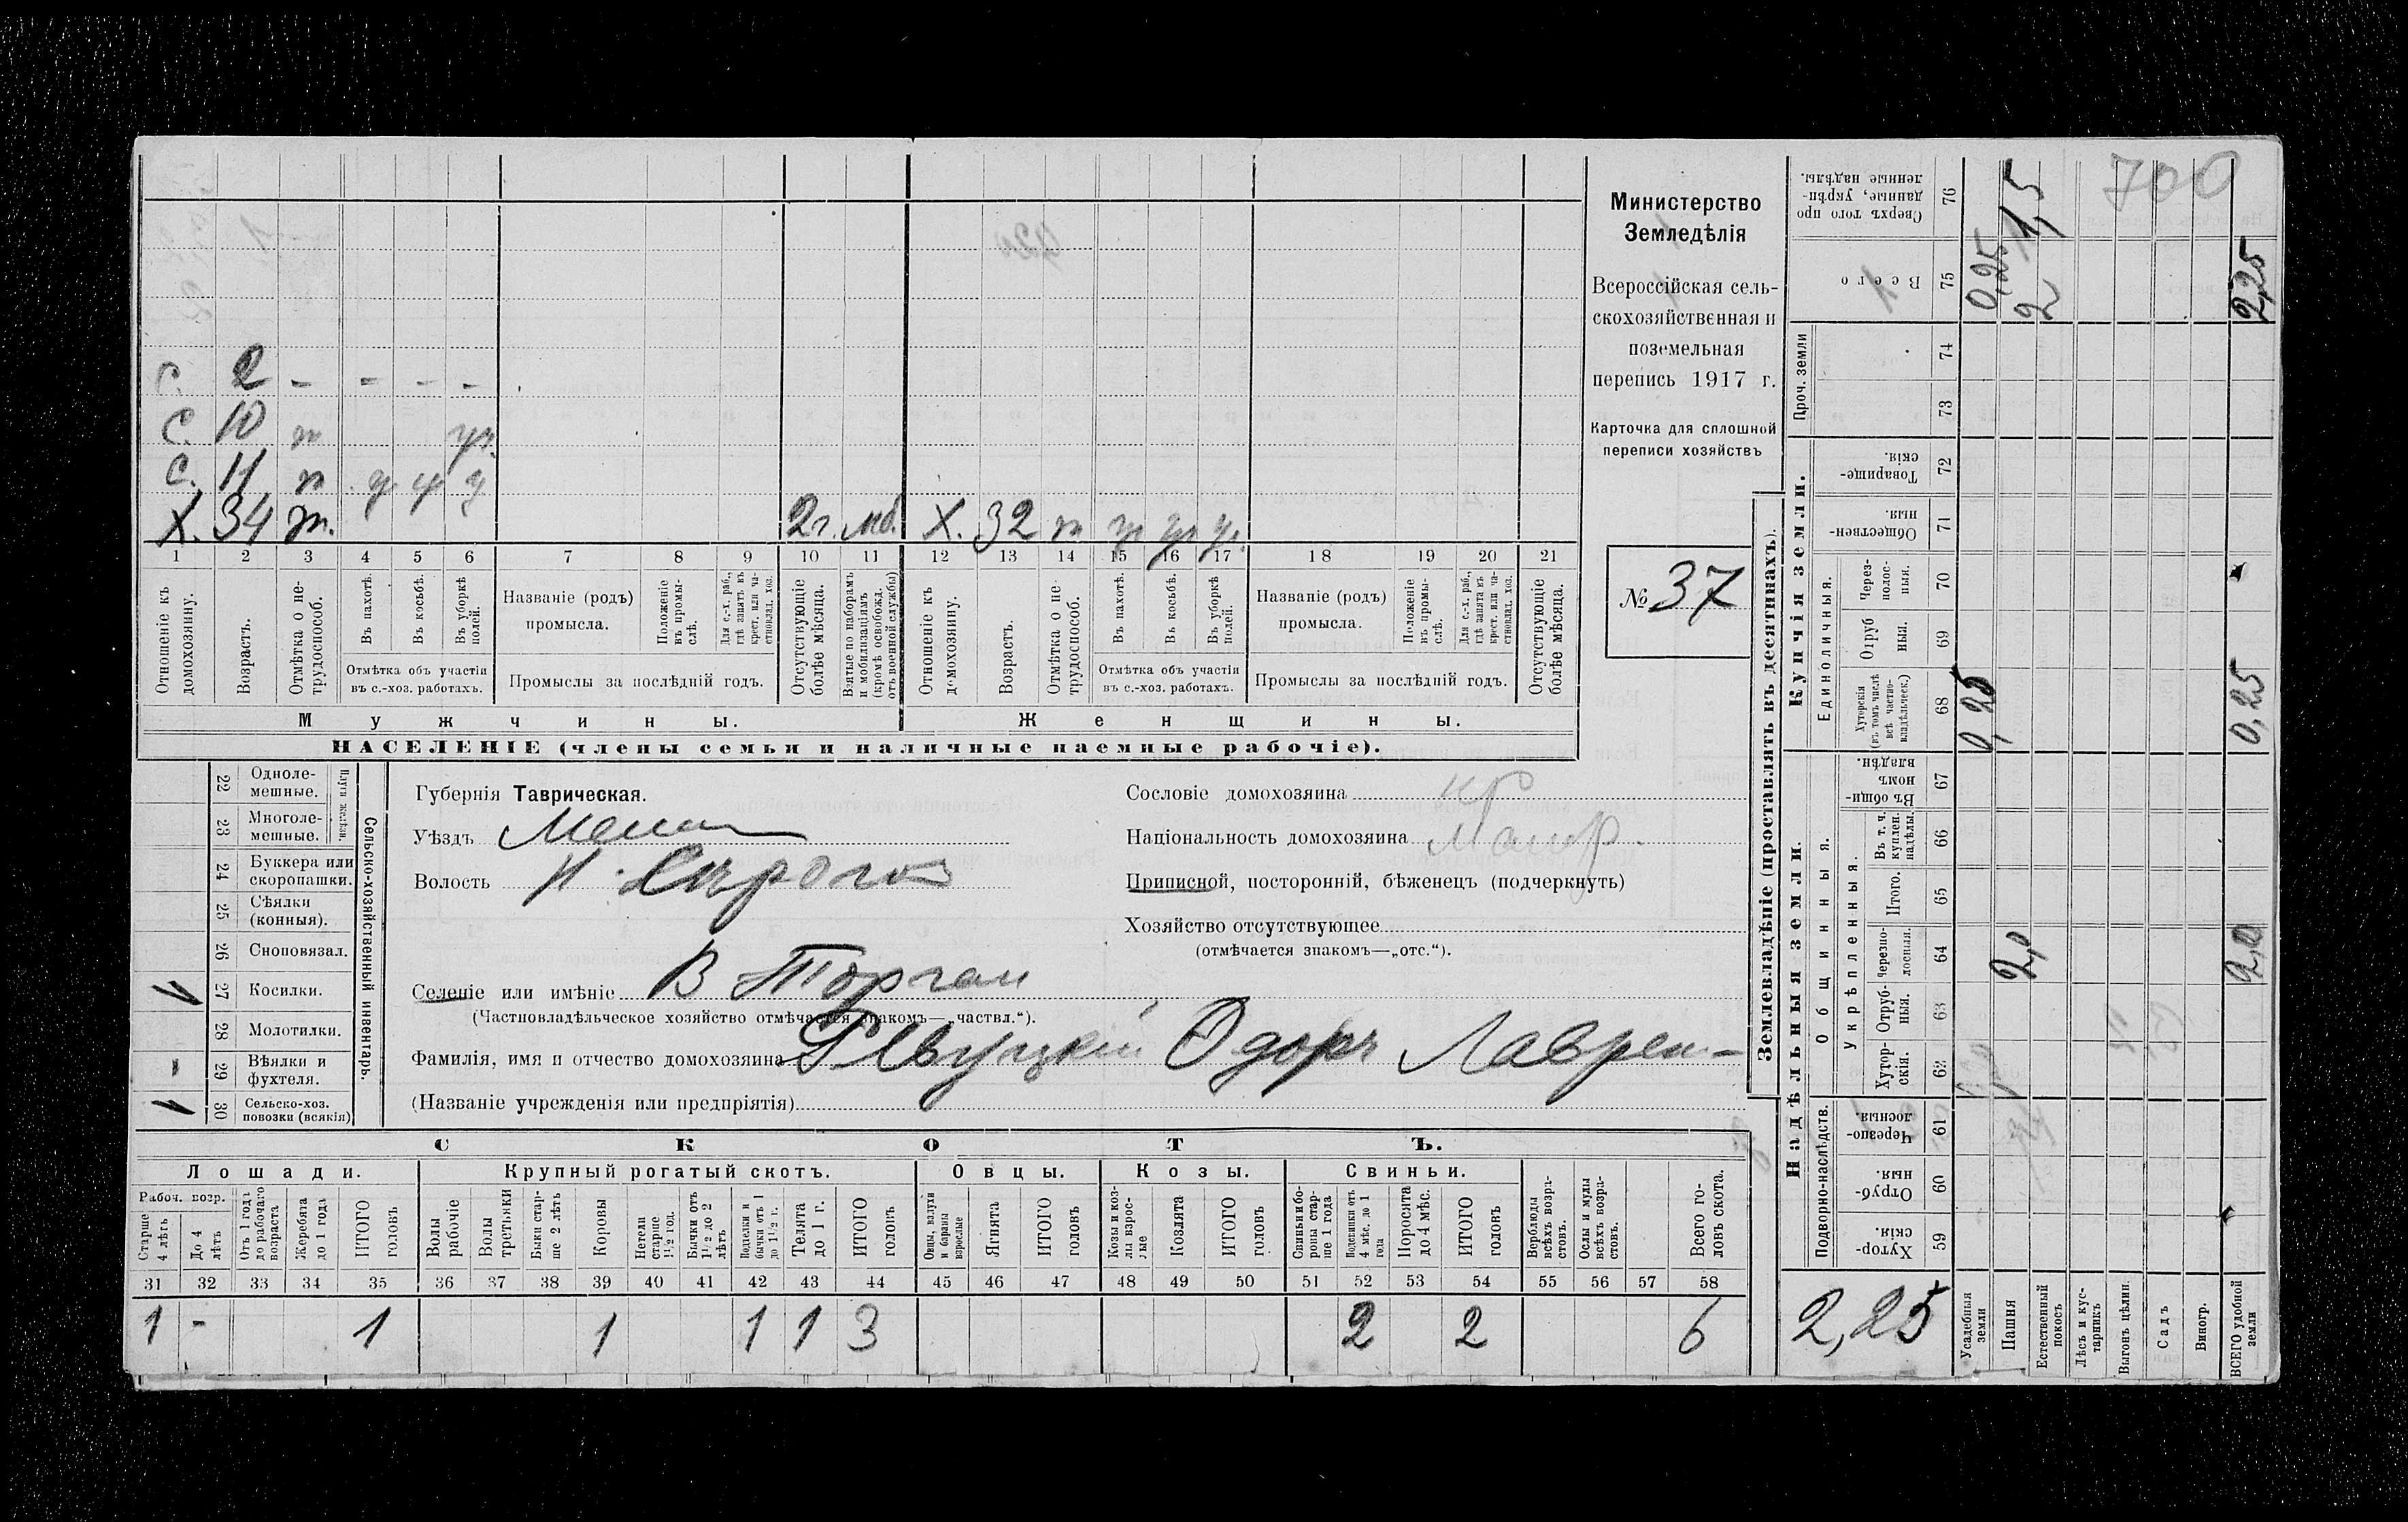 С. 2 - - - -
С. 10 т ур.
С. 11 п у у у
Х. 34 т. 2 г. мб. Х. 32 п у у у.
1 2 3 4 5 6 7 8 9 10 11 12 13 14 15 16 17 18 19 20 21
Отношеніе къ домохозяину.
Возрастъ.
Отмѣтка о не-трудоспособ.
Въ пахотѣ.
Въ косьбѣ.
Въ уборкѣ полей.
Отмѣтка объ участіи
въ с.-хоз. работахъ.
Названіе (родъ)
промысла.
Положеніе въ промы-слѣ.
Для с.-х. раб., гдѣ занятъ въ крест. или ча-стновлад. хоз.
Промыслы за послѣдній годъ.
Отсутствующіе болѣе мѣсяца.
Взятые по наборамъ и мобилизаціямъ (кромѣ освобожд. отъ военной службы)
Отношеніе къ домохозяину.
Возрастъ.
Отмѣтка о не-трудоспособ.
Въ пахотѣ.
Въ косьбѣ.
Въ уборкѣ полей.
Отмѣтка объ участіи
въ с.-хоз. работахъ.
Названіе (родъ)
промысла.
Положеніе въ промы-слѣ.
Для с.-х. раб., гдѣ занята въ крест. или ча-стновлад. хоз.
Промыслы за послѣдній годъ.
Отсутствующіе болѣе мѣсяца.
Мужчины.
Женщины.
НАСЕЛЕНІЕ (члены семьи и наличные наемные рабочіе).
Министерство
Земледѣлія
Всероссійская сель-
скохозяйственная и
поземельная
перепись 1917 г.
Карточка для сплошной
переписи хозяйствъ
№ 37
22 Одноле-мешные.
23 Многоле-мешные.
Плуги желѣзн.
24 Буккера или скоропашки.
25 Сѣялки (конныя).
26 Сноповязал.
27 Косилки. 1
28 Молотилки.
29 Вѣялки и фухтеля. -
30 Сельско-хоз. повозки (всякія) 1
Сельско-хозяйственный инвентарь.
Губернія Таврическая.
Уѣздъ Мелит
Волость Н. Сѣрогоз
Селеніе или имѣніе В Торгаи
(Частновладѣльческое хозяйство отмѣчается знакомъ—„частвл.“).
Фамилія, имя и отчество домохозяина Ѳдоръ Лаврен-
(Названіе учрежденія или предпріятія)
Сословіе домохозяина кр
Національность домохозяина Малор.
Приписной, посторонній, бѣженецъ (подчеркнуть)
Хозяйство отсутствующее
(отмѣчается знакомъ—„отс.“).
СКОТЪ.
Лошади. Крупный рогатый скотъ. Овцы. Козы. Свиньи.
Рабоч. возр.
Старше 4 лѣтъ
До 4 лѣтъ
Отъ 1 года до рабочаго возраста
Жеребята до 1 года
ИТОГО головъ
Волы рабочіе
Волы третьяки
Быки стар-ше 2 лѣтъ
Коровы
Нетели старше 1½ год.
Бычки отъ 1½ до 2 лѣтъ
Подтелки и бычки отъ 1 до 1½ г.
Телята до 1 г.
ИТОГО головъ
Овцы, валухи и бараны взрослые
Ягнята
ИТОГО головъ
Козы и коз-лы взрос-лые
Козлята
ИТОГО головъ
Свиньи и бо-ровы стар-ше 1 года
Подсвинки отъ 4 мѣс. до 1 года
Поросята до 4 мѣс.
ИТОГО головъ
Верблюды всѣхъ возра-стовъ.
Ослы и мулы всѣхъ возра-стовъ.
Всего го-ловъ скота.
31 32 33 34 35 36 37 38 39 40 41 42 43 44 45 46 47 48 49 50 51 52 53 54 55 56 57 58
1 - 1 1 1 1 3 2 2 6
Землевладѣніе (проставлять въ десятинахъ).
Надѣльныя земли.
Подворно-наслѣдств.
Хутор-скія. 59
Отруб-ныя. 60
Черезпо-лосныя. 61
Общинныя.
Укрѣпленныя.
Хутор-скія. 62
Отруб-ныя. 63
Черезпо-лосныя. 64
Итого. 65
Въ т. ч. куплен. надѣлы. 66
Въ общи-номъ владѣн. 67
Купчія земли.
Единоличныя.
Хуторскія (въ томъ числѣ всѣ частно-владѣльческ.) 68
Отруб ныя. 69
Через-полос-ныя. 70
Обществен-ныя. 71
Товарище-скія. 72
Проч. земли
73 74
Всего 75
Сверхъ того про данные, укрѣп-ленные надѣлы. 76
2,25
Усадебныя земли 0,25 0,25
Пашня 2,0 2 1,5
Естественный покосъ
Лѣсъ и кус-тарникъ
Выгонъ цѣлин.
Садъ
Виногр.
ВСЕГО удобной земли 2,0 0,25 2,25
700